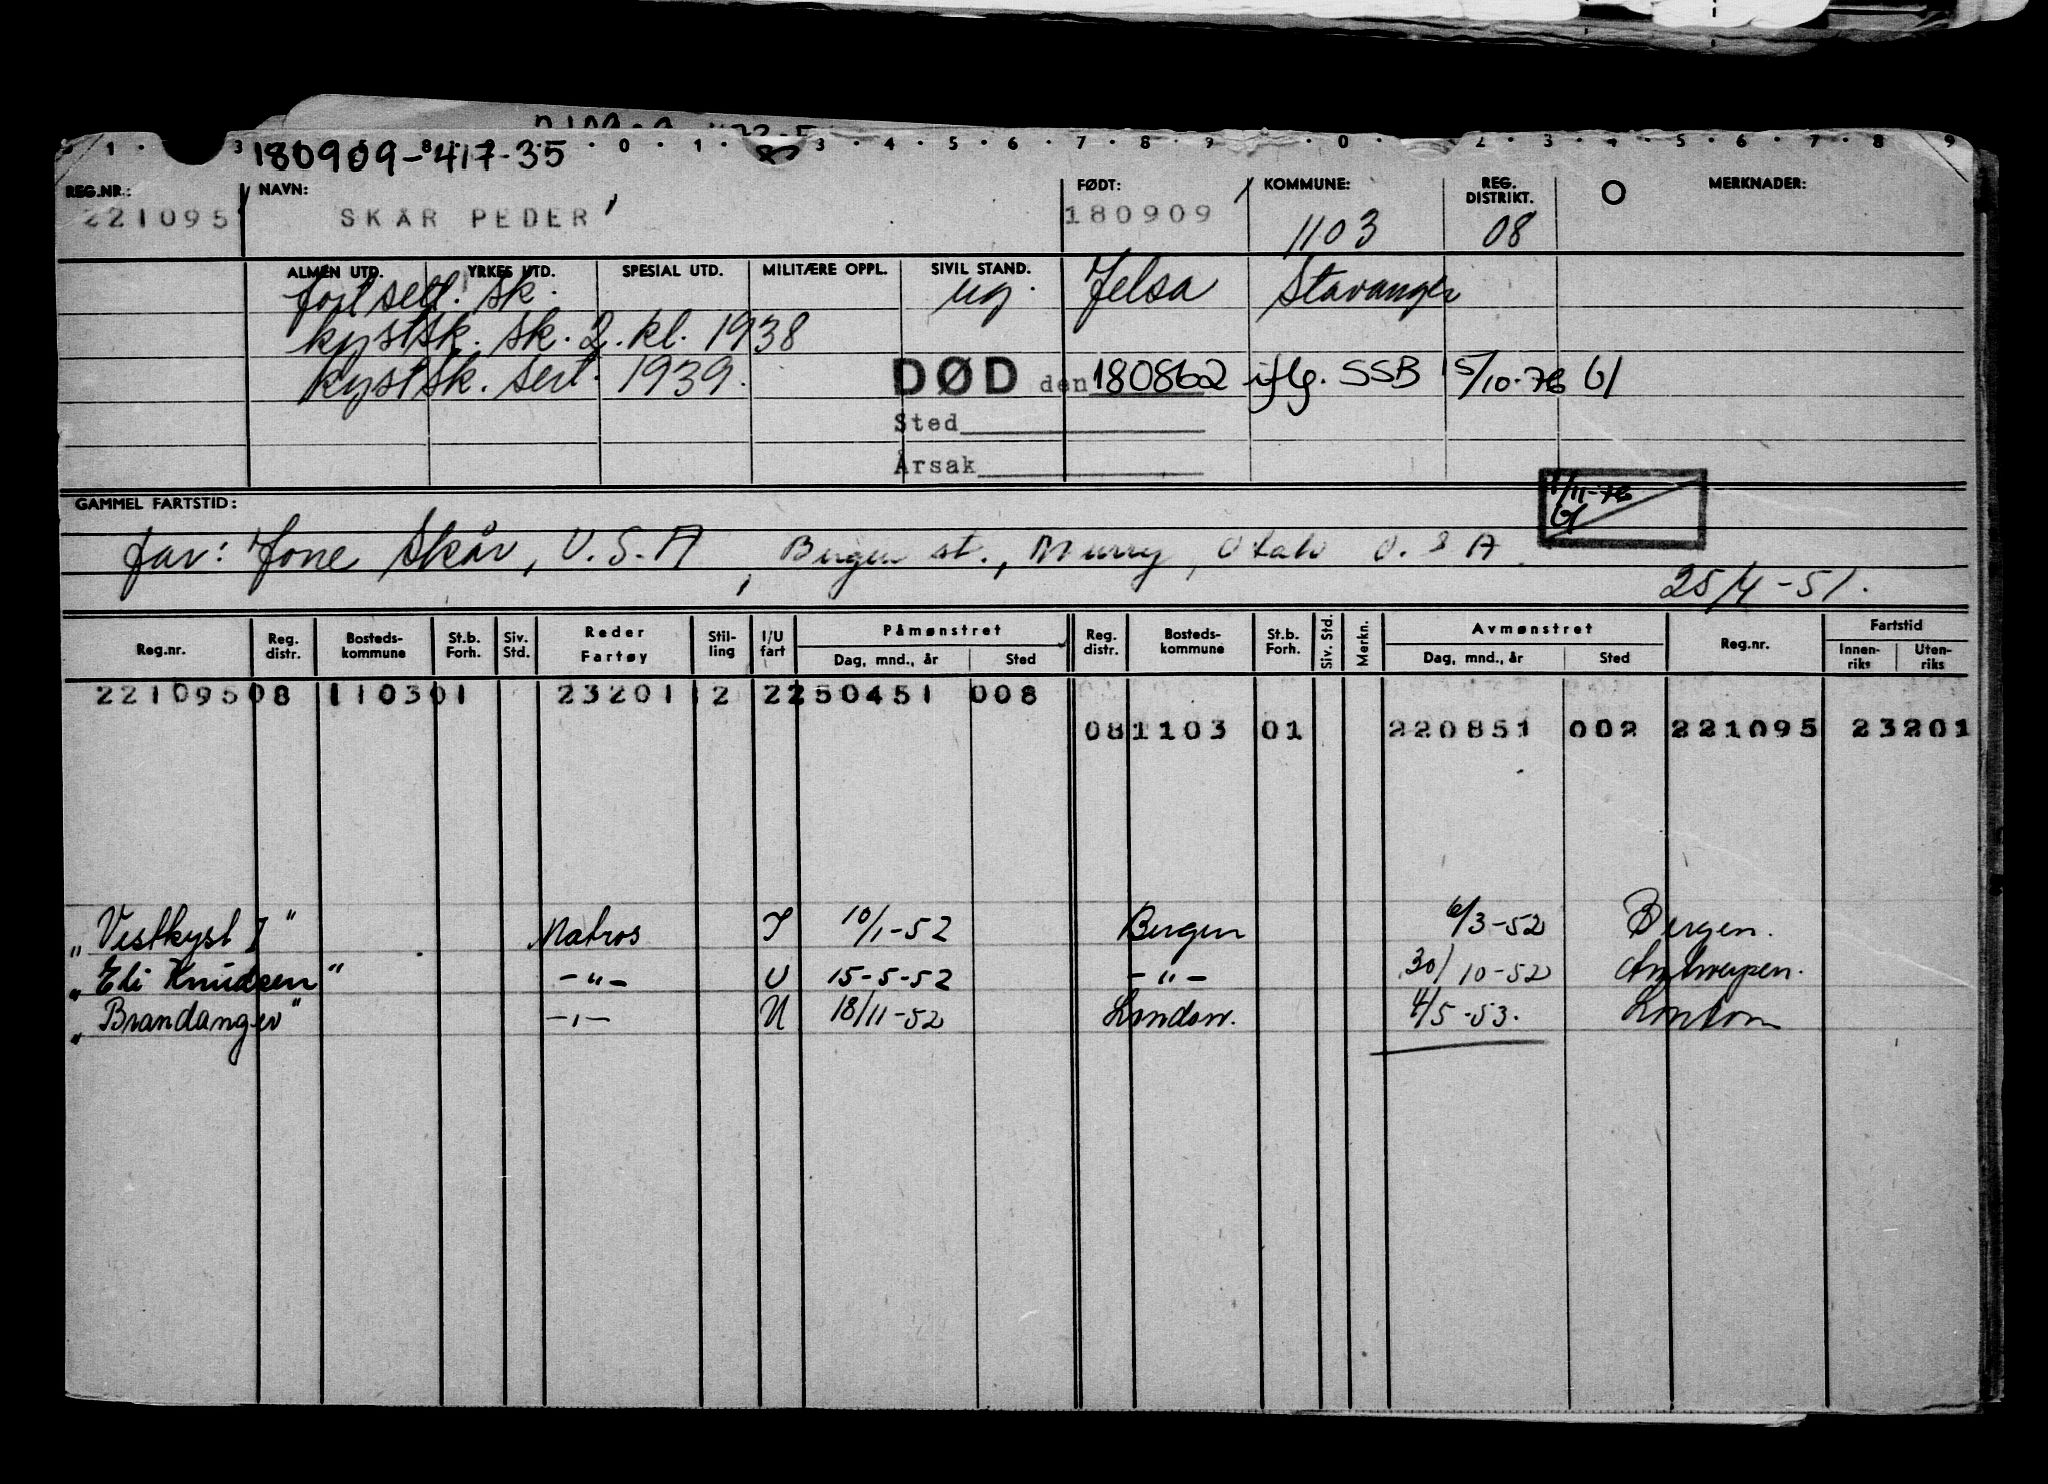 180909-417-35
REG.NR.: NAVN: FØDT: KOMMUNE: REG. DISTRIKT. MERKNADER:
221095 SKÅR PEDER 180909 1103 08
ALMEN UTD. YRKES UTD. SPESIAL UTD. MILITÆRE OPPL. SIVIL STAND.
fortsett. sk. ug. Jelsa Stavanger
kystsk. sk. 2. kl. 1938
kystsk. sert. 1939. DØD den 180862 iflg. SSB 5/10-76
Sted
Årsak
GAMMEL FARTSTID: 1/11-76
far: Jone Skår, U.S.A, Bergen st., Murry, Utah U.S A.
25/4-51.
Reg.nr. Reg. distr. Bosteds-kommune St.b. Forh. Siv. Std. Reder Fartøy Stil-ling I/U fart Påmønstret Dag, mnd., år Sted Reg. distr. Bosteds-kommune St.b. Forh. Siv. Std. Merkn. Avmønstret Dag, mnd., år Sted Reg.nr. Fartstid Innen-riks Uten-riks
221095 08 1103 01 23201 2 2 250451 008
08 1103 01 220851 002 221095 23201
„Vestkyst I" Matros I 10/1-52 Bergen 6/3-52 Bergen.
„Eli Knudsen" -"- U 15-5-52 -"- 30/10-52 Antwerpen.
„Brandanger" -"- U 18/11-52 London. 4/5-53. London